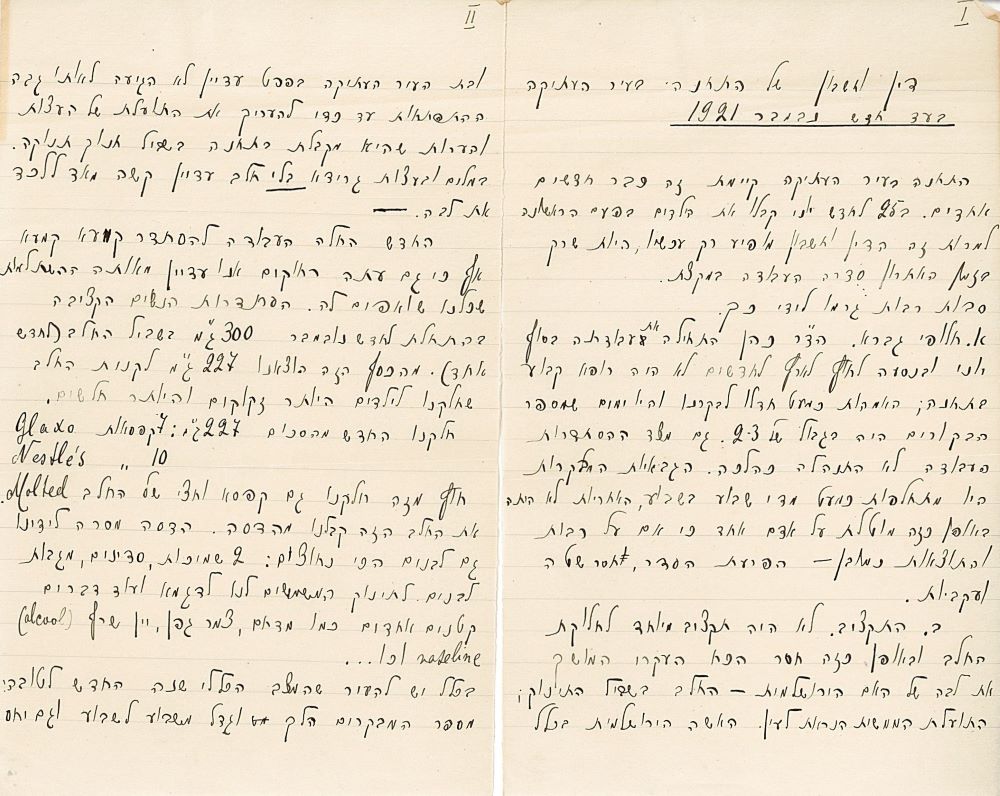 I
דין וחשבון של התחנה בעיר העתיקה
בעד חדש נובמבר 1921
התחנה בעיר העתיקה קיימת זה כבר חדשים
אחדים. ב25 לחדש יוני קבלו את הילדים בפעם הראשונה
למרות זה הדין וחשבון מופיע רק עכשו, היות שרק
בזמן האחרון סודרה העבודה במקצת.
סבות רבות גרמו לידי כך.
א. חלופי גברא. הד"ר כהן התחילה את עבודתה בסוף
יוני ובנסעה לחוף לארץ לחדשים לא היה רופא קבוע
בתחנה; האמהות כמעט חדלו לבקרנו והיו ימים שמספר
הבקורים היה בגבול של 2-3. גם מצד ההסתדרות
העבודה לא התנהלה כהלכה. הגבאיות המבקרות
היו מתחלפות כמעט מדי שבוע בשבוע, האחריות לא היתה
באופן כזה מוטלת על אדם אחד כי אם על רבות
והתוצאות כמובן — הפרעת הסדר, חסר שטה
ועקביות.
ב. התקציב. לא היה תקציב מיוחד לחלוקת
החלב ובאופן כזה חסר הכח העקרי המושך
את לבה של האם הירושלמית — החלב בשביל התינוק;
התועלת הממשית הנראת לעין. האשה הירושלמית בכלל
II
ובת העיר העתיקה בפרט עדיין לא הגיעה לאותו גבה
ההתפתחות עד כדי להעריך את התועלת של העצות
והערות שהיא מקבלת בתחנה בשביל חנוך תנוקה.
במלים ובעצות גרידא בלי חלב עדיין קשה מאד ללכד
את לבה. —
החדש החלה העבודה להסתדר קמעא קמעא
אף כי גם עתה רחוקים אנו עדיין מאותה ההשתלמות
שכלנו שואפים לה. הסתדרות הנשים הקציבה
בהתחלת לחדש נובמבר 300 ג"מ בשביל החלב (לחדש
אחד). מהכסף הזה הוצאנו 227 ג"מ לקנות החלב
שחלקנו לילדים היותר זקוקים והיותר חלשים.
חלקנו החדש מהסכום 227 ג"מ: 7 קפסאות Glaxo
10 " Nestle's
חוץ מזה חלקנו גם קפסא וחצי של החלב Molted.
את החלב הזה קבלנו מהדסה. הדסה מסרה לידינו
גם לבנים הכי נחוצים: 2 שמיכות, סדינים, מגבות
לבנים לתינוק המשמשים לנו לדגמא ועוד דברים
קטנים אחדים כמו מדחם, צמר גפן, יין שרף (alcool)
vaseline וכו...
בכלל יש להעיר שהמצב הכללי שנה החדש לטובה:
מספר המבקרים הלך וגדל משבוע לשבוע וגם יחס